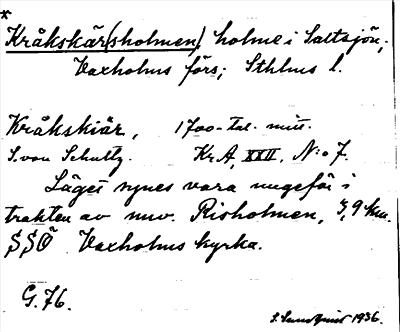 *
Kråkskär(sholmen) holme i Saltsjön;
Vaxholms förs; Sthlms l.
Kråkskiär, 1700-tal. mitt.
S. von Schultz. Kr. A, XXII, N:o 7.
Läget synes vara ungefär i
trakten av nuv. Risholmen, 3,9 km.
SSÖ Vaxholms kyrka.
G. 76.
1936.